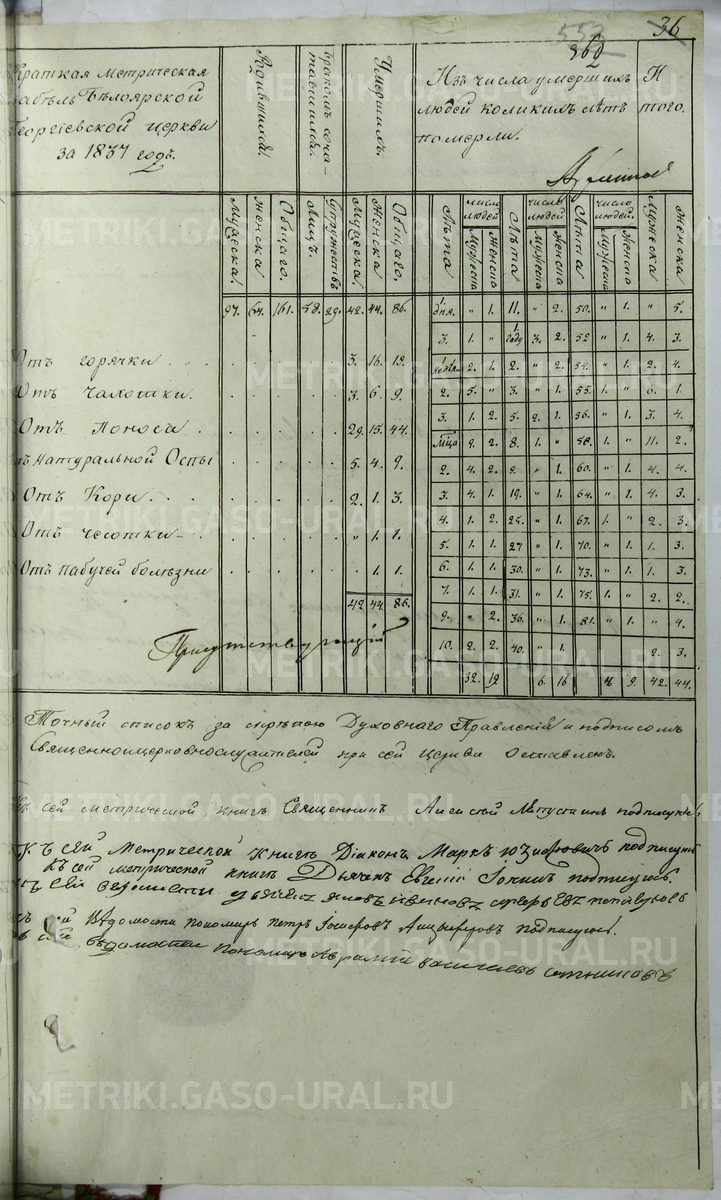 36
553
360
Краткая метрическая
табѣль Бѣлоярской
Георгіевской церкви
за 1837 годъ.
Родившихся.
Бракомъ соча-
тавшихся.
Умершихъ.
Изъ числа умершихъ
людей коликихъ лѣтъ
померли.
И
того.
Мужеска. Женска Общаго. Лицъ. Супружествъ Мужеска. Женска. Общаго.
Лѣта число людей Мужеска Женска Лѣта число людей. Мужеска Женска Лѣта число людей. Мужеска Женска Мужеска Женска
97. 64. 161. 58. 29. 42. 44. 86. 1 дня. " 1. 11. " 2. 50. " 1. " 5.
3. 1. " 1 году 3. 2. 52 " 1. 4. 3.
Отъ горячки . . . 3. 16. 19. 1 недѣли 2. 1. 2. " 2. 54. " 1. 2. 4.
Отъ чахотки. 3. 6. 9. 2. 5. " 3. " 1. 55. 1. " 6. 1.
Отъ поноса 29. 15. 44. 3. 1. 2. 5. 2. 1. 56. " 1. 3. 4.
натуральной оспы 5. 4. 9. Мца 2. 2. 8. 1. " 58. 1. " 11. 2.
2. 4. 2. 9. " 1. 60. " 1. 4. 4.
Отъ кори . . . 2. 1. 3. 3. 4. 1. 19. " 1. 64. " 1. 4. 3.
Отъ чесотки 	" 1. 1. 4. 1. 2. 25. " 1. 67. 1. " 2. 3.
5. 1. 1. 27 " 1. 70. " 1. 1. 3.
Отъ падучей болѣзни " 1. 1. 6. 1. 1. 30. " 1. 73. " 1. 1. 3.
42. 44. 86. 7. 1. 1. 31. " 1. 75. 1. " 2. 2.
9. " 2. 36. " 1. 81. " 1. " 4.
Присутствующій 10. 2. 2. 40. " 1. 2. 3.
32. 19. 6. 16 4. 9. 42. 44.
Точный списокъ за скрѣпою Духовнаго Правленія и подписомъ
Священноцерковнослужителей при сей церкви оставленъ.
сей метрической книгѣ Священникъ подписуюсь
Къ сей Метрической книгѣ Діаконъ Маркъ подписуюсь
Къ сей метрической книгѣ Дьячекъ Евгеній подписуюсь.
сей ведомости
сей Вѣдомости пономарь Петръ подписуюсь.
сей ведомости пономарь Аврамій Васильевъ
METRIKI.GASO-URAL.RU